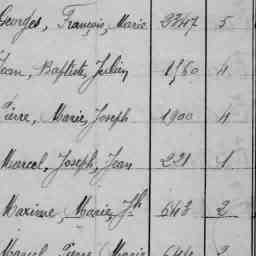 Georges, François, Marie 2347 5
Jean, Baptiste, Julien 1560 4
Pierre, Marie, Joseph 1900 4
Marcel, Joseph, Jean 221 1
Maxime, Marie, Jh 643 2
Marcel, Pierre, Marie 644 2